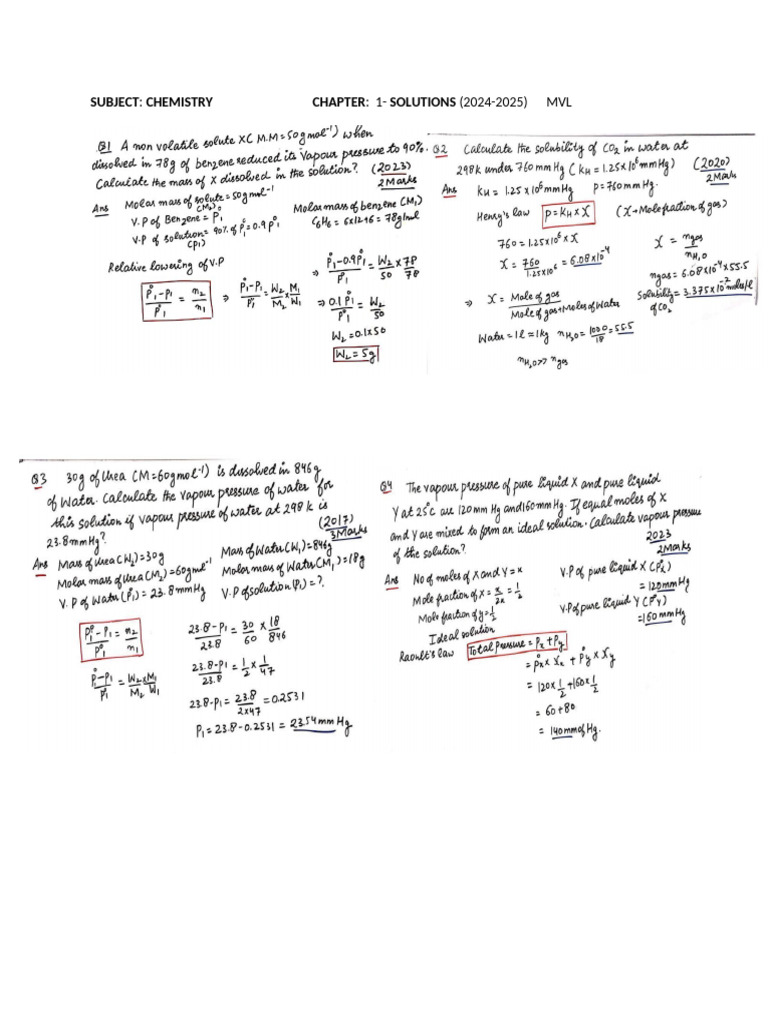 SUBJECT: CHEMISTRY CHAPTER: 1- SOLUTIONS (2024-2025) MVL
Q1 A non volatile solute X(M.M=50gmol⁻¹) when
dissolved in 78g of benzene reduced its vapour pressure to 90%.
Calculate the mass of X dissolved in the solution? (2023)
2Marks
Ans Molar mass of solute=50gmol⁻¹
(M₂)
V.P of Benzene = P°₁
V.P of solution= 90% of P°₁=0.9P°₁
(P₁)
Molar mass of benzene (M₁)
C₆H₆ = 6x12+6 = 78g/mol
Relative lowering of V.P
P°₁-P₁/P°₁ = n₂/n₁
⇒ P°₁-P₁/P°₁ = W₂/M₂ x M₁/W₁
⇒ P°₁-0.9P°₁/P°₁ = W₂/50 x 78/78
⇒ 0.1P°₁/P°₁ = W₂/50
W₂ = 0.1x50
W₂ = 5g
Q2 Calculate the solubility of CO₂ in water at
298k under 760mmHg (kH = 1.25x10⁶mmHg) (2020)
2Marks
Ans kH = 1.25x10⁶mmHg P=760mmHg.
Henry's law P=kH x X (X→Molefraction of gas)
760 = 1.25x10⁶ x X
X = 760/1.25x10⁶ = 6.08x10⁻⁴
⇒ X = Mole of gas/Mole of gas+Moles of Water
Water = 1l = 1kg nH₂O = 1000/18 = 55.5
nH₂O>> ngas
X = ngas/nH₂O
ngas = 6.08x10⁻⁴x55.5
Solubility = 3.375x10⁻² moles/l
of CO₂
Q3 30g of Urea (M=60gmol⁻¹) is dissolved in 846g
of Water. Calculate the vapour pressure of water for
this solution if vapour pressure of water at 298 k is
23.8mmHg?
(2017)
3Marks
Ans Mass of Urea (W₂)=30g
Molar mass of Urea (M₂) = 60gmol⁻¹
V.P of Water (P°₁) = 23.8mmHg
Mass of Water (W₁) = 846g
Molar mass of Water (M₁) = 18g
V.P of solution (P₁) = ?
P°₁-P₁/P°₁ = n₂/n₁
P°₁-P₁/P°₁ = W₂xM₁/M₂ W₁
23.8-P₁/23.8 = 30/60 x 18/846
23.8-P₁/23.8 = 1/2 x 1/47
23.8-P₁ = 23.8/2x47 = 0.2531
P₁ = 23.8-0.2531 = 23.54mmHg
Q4 The vapour pressure of pure liquid X and pure liquid
Y at 25°C are 120mm Hg and160mmHg. If equal moles of X
and Y are mixed to form an ideal solution. Calculate vapour pressure
of the solution?.
2023
2Marks
Ans No of moles of X and Y = x
Mole fraction of X = x/2x = 1/2
Mole fraction of y = 1/2
Ideal solution
V.P of pure liquid X (P°x)
= 120mmHg
V.P of pure liquid Y (P°Y)
= 160mmHg
Raoult's law Total Pressure = Px + Py
= P°x x Xx + P°y x Xy
= 120x1/2+160x1/2
= 60+80
= 140mmofHg.